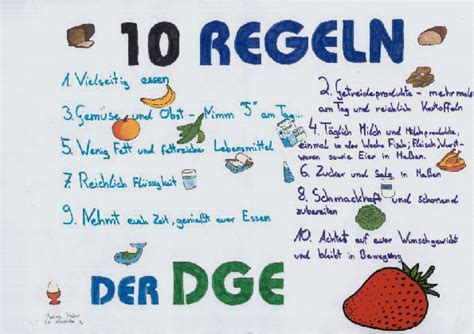 10 REGELN
1. Vielseitig essen
2. Getreideprodukte - mehrmals
am Tag und reichlich Kartoffeln
3. Gemüse und Obst - Nimm "5" am Tag...
4. Täglich Milch und Milchprodukte,
einmal in der Woche Fisch, Fleisch, Wurst-
waren sowie Eier in Maßen.
5. Wenig Fett und fettreiche Lebensmittel
6. Zucker und Salz in Maßen
7. Reichlich Flüssigkeit
8. Schmackhaft und schonend
zubereiten
9. Nehmt euch Zeit, genießt euer Essen
10. Achtet auf euer Wunschgewicht
und bleibt in Bewegung
DER DGE